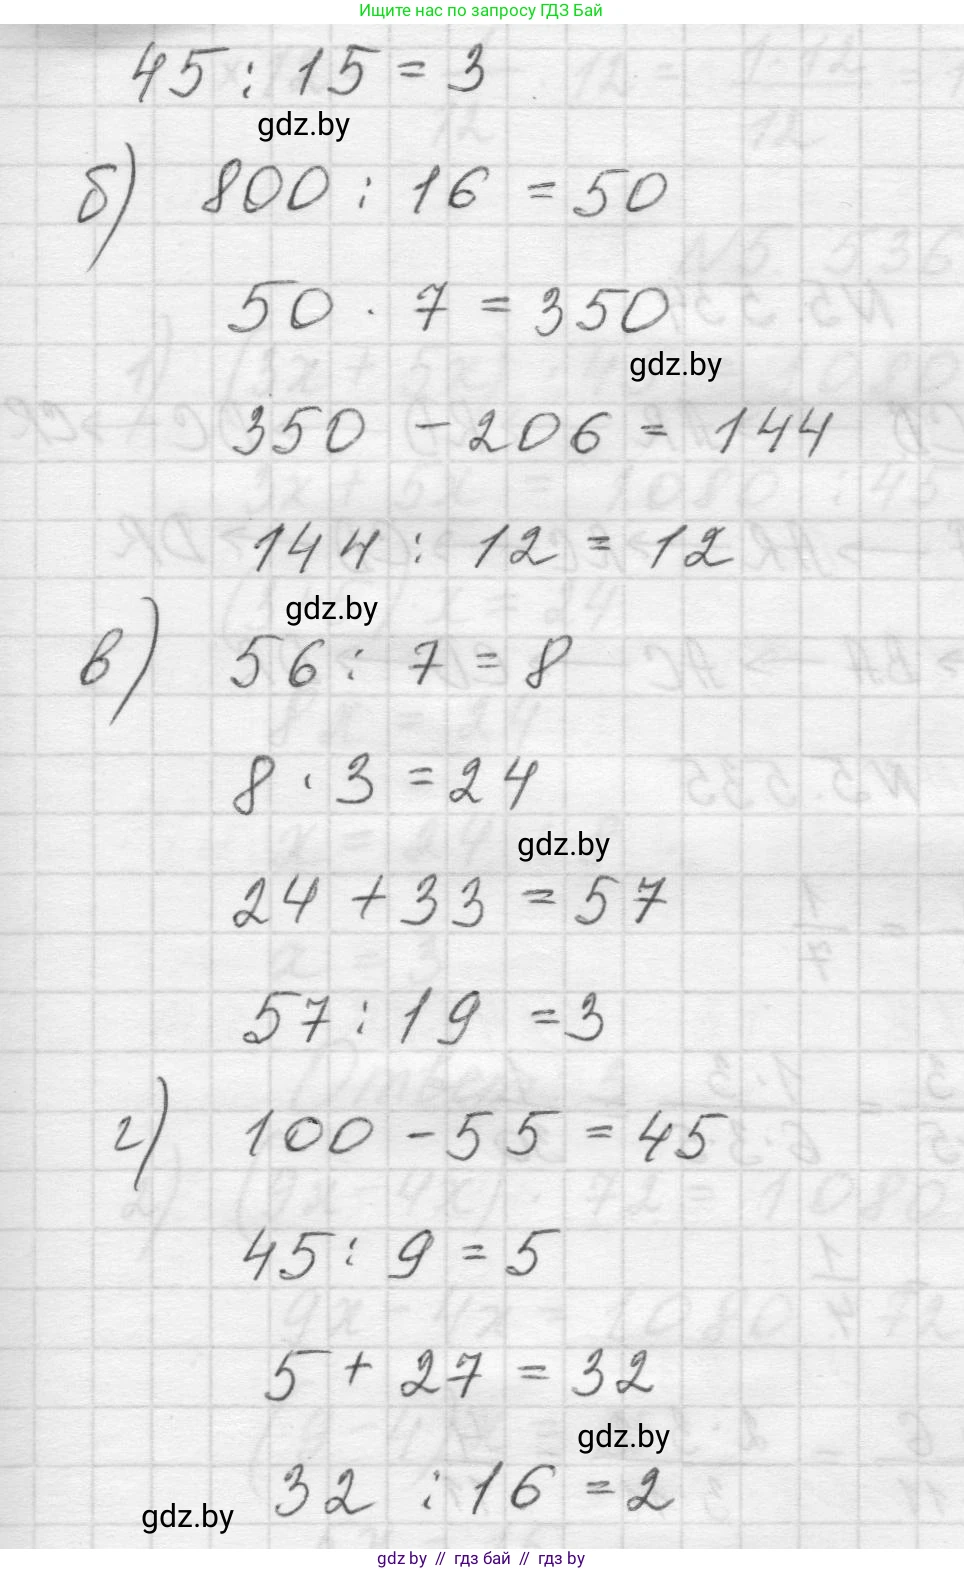 Ищите нас по запросу ГДЗ Бай
45 : 15 = 3
gdz.by
б) 800 : 16 = 50
50 · 7 = 350
gdz.by
350 - 206 = 144
144 : 12 = 12
gdz.by
в) 56 : 7 = 8
8 · 3 = 24
gdz.by
24 + 33 = 57
57 : 19 = 3
г) 100 - 55 = 45
45 : 9 = 5
5 + 27 = 32
gdz.by
32 : 16 = 2
gdz.by
gdz by // гдз бай // gdz by